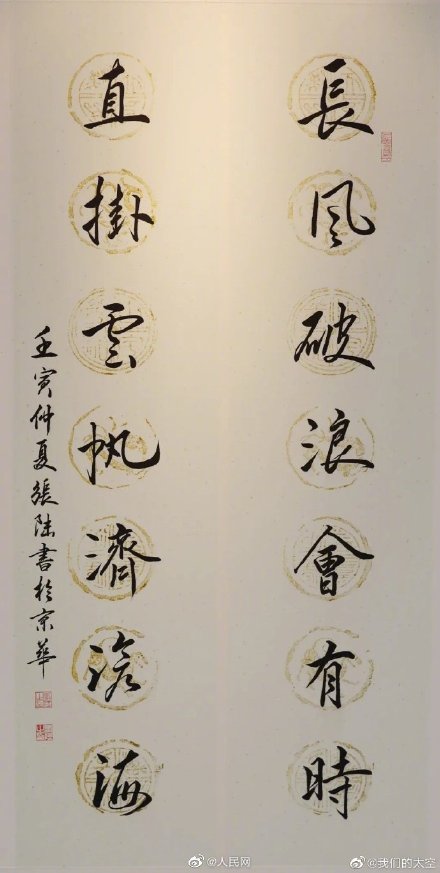 長風破浪會有時
直掛雲帆濟滄海
壬寅仲夏張陸書於京華
@人民网
@我们的太空